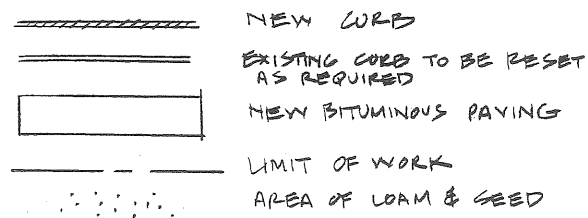 NEW CURB
EXISTING CURB TO BE RESET
AS REQUIRED
NEW BITUMINOUS PAVING
LIMIT OF WORK
AREA OF LOAM & SEED